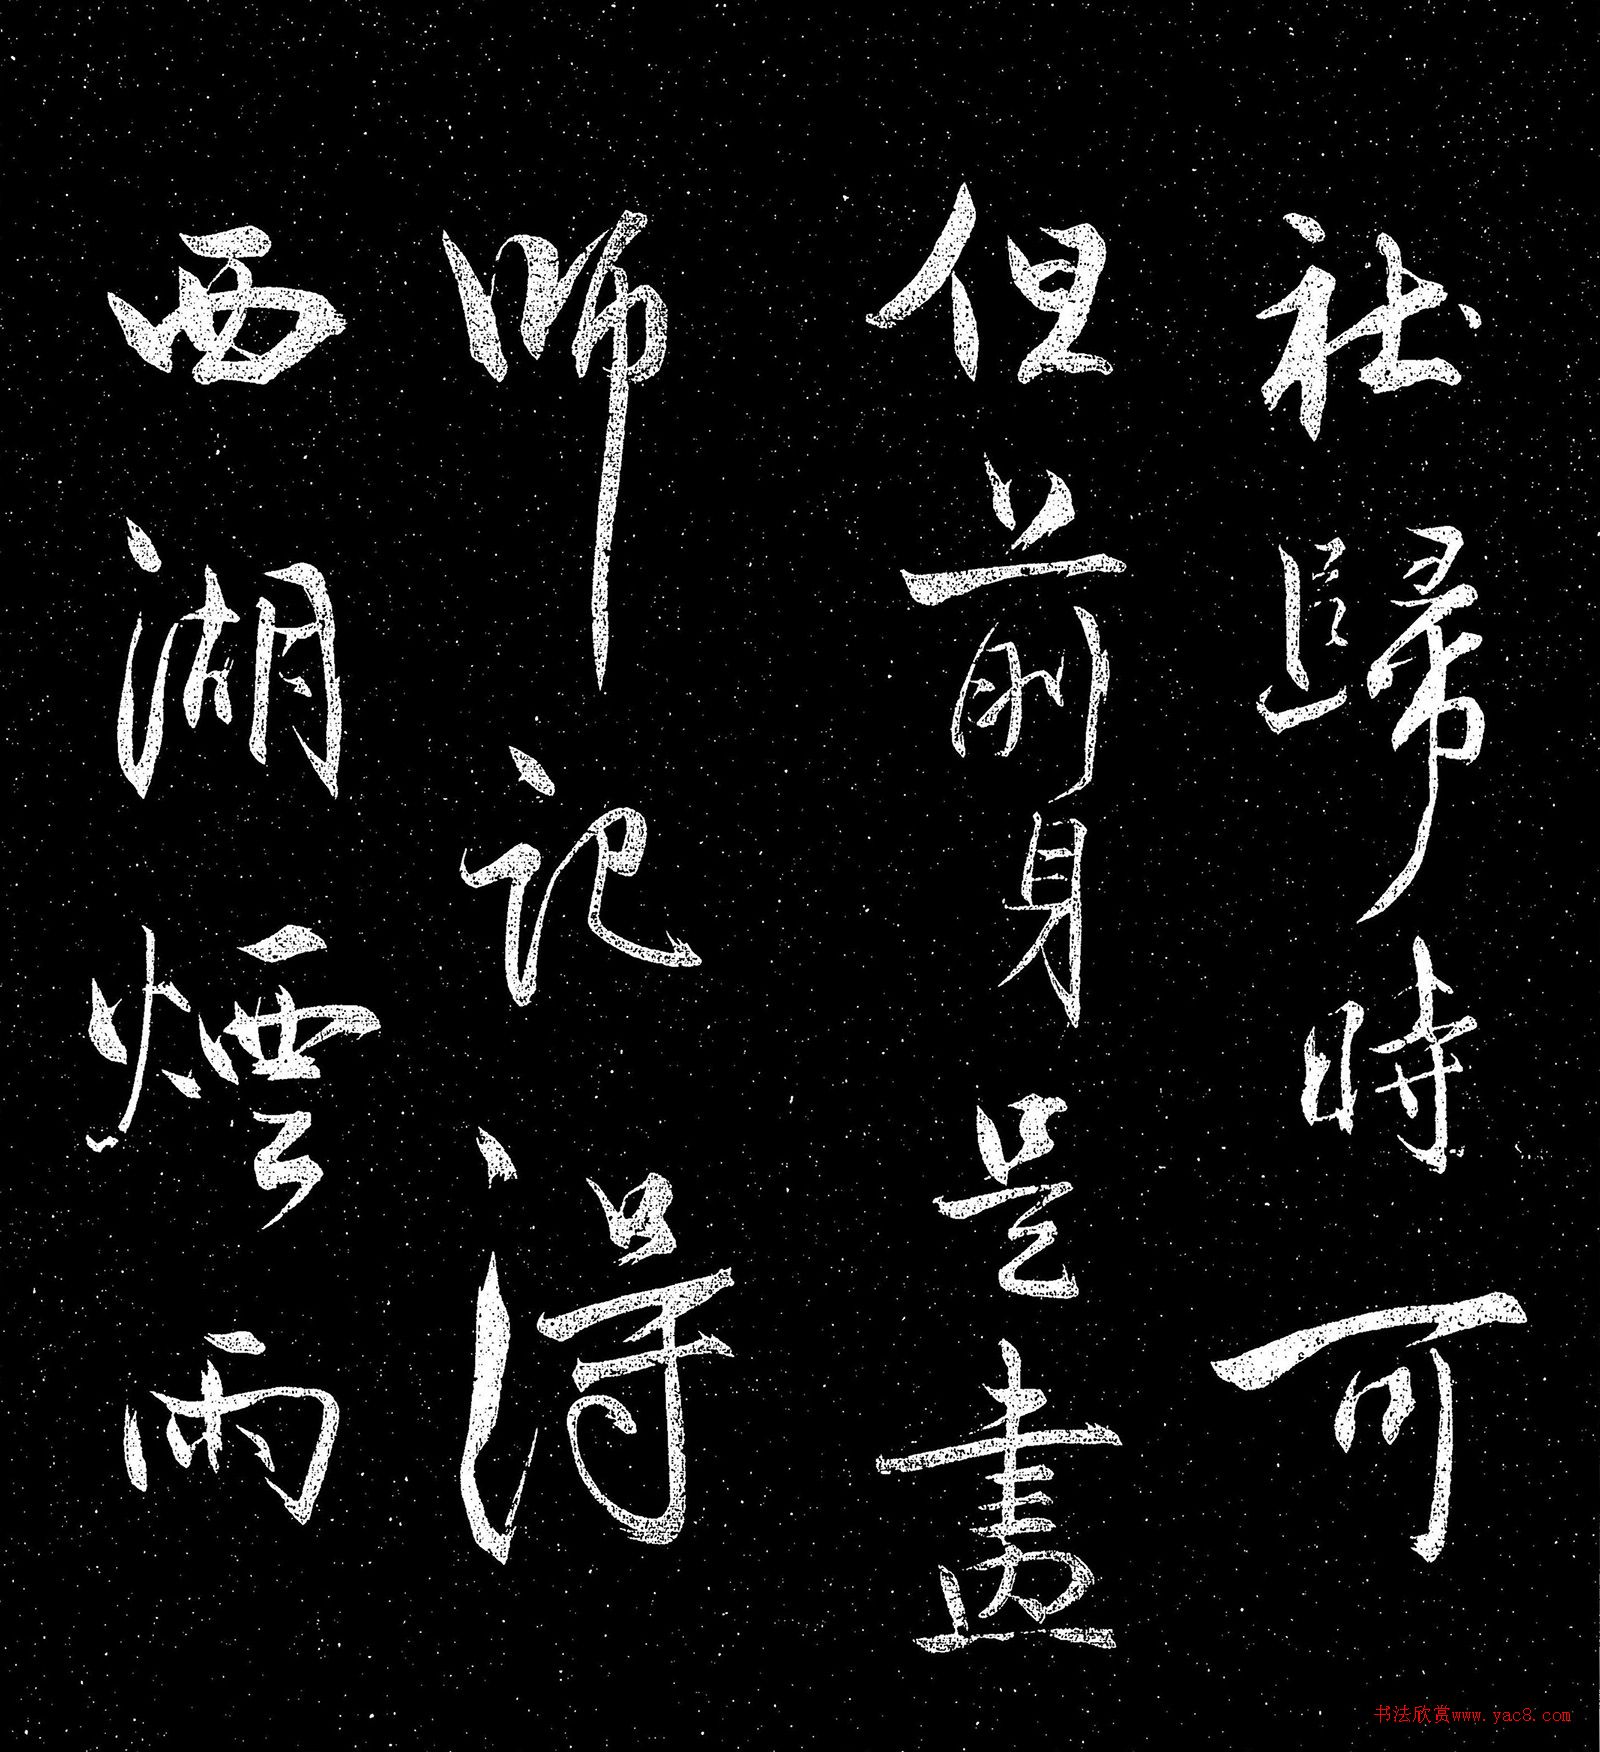 社歸時可
但前身是畫
師記得
西湖煙雨
书法欣赏www.yac8.com